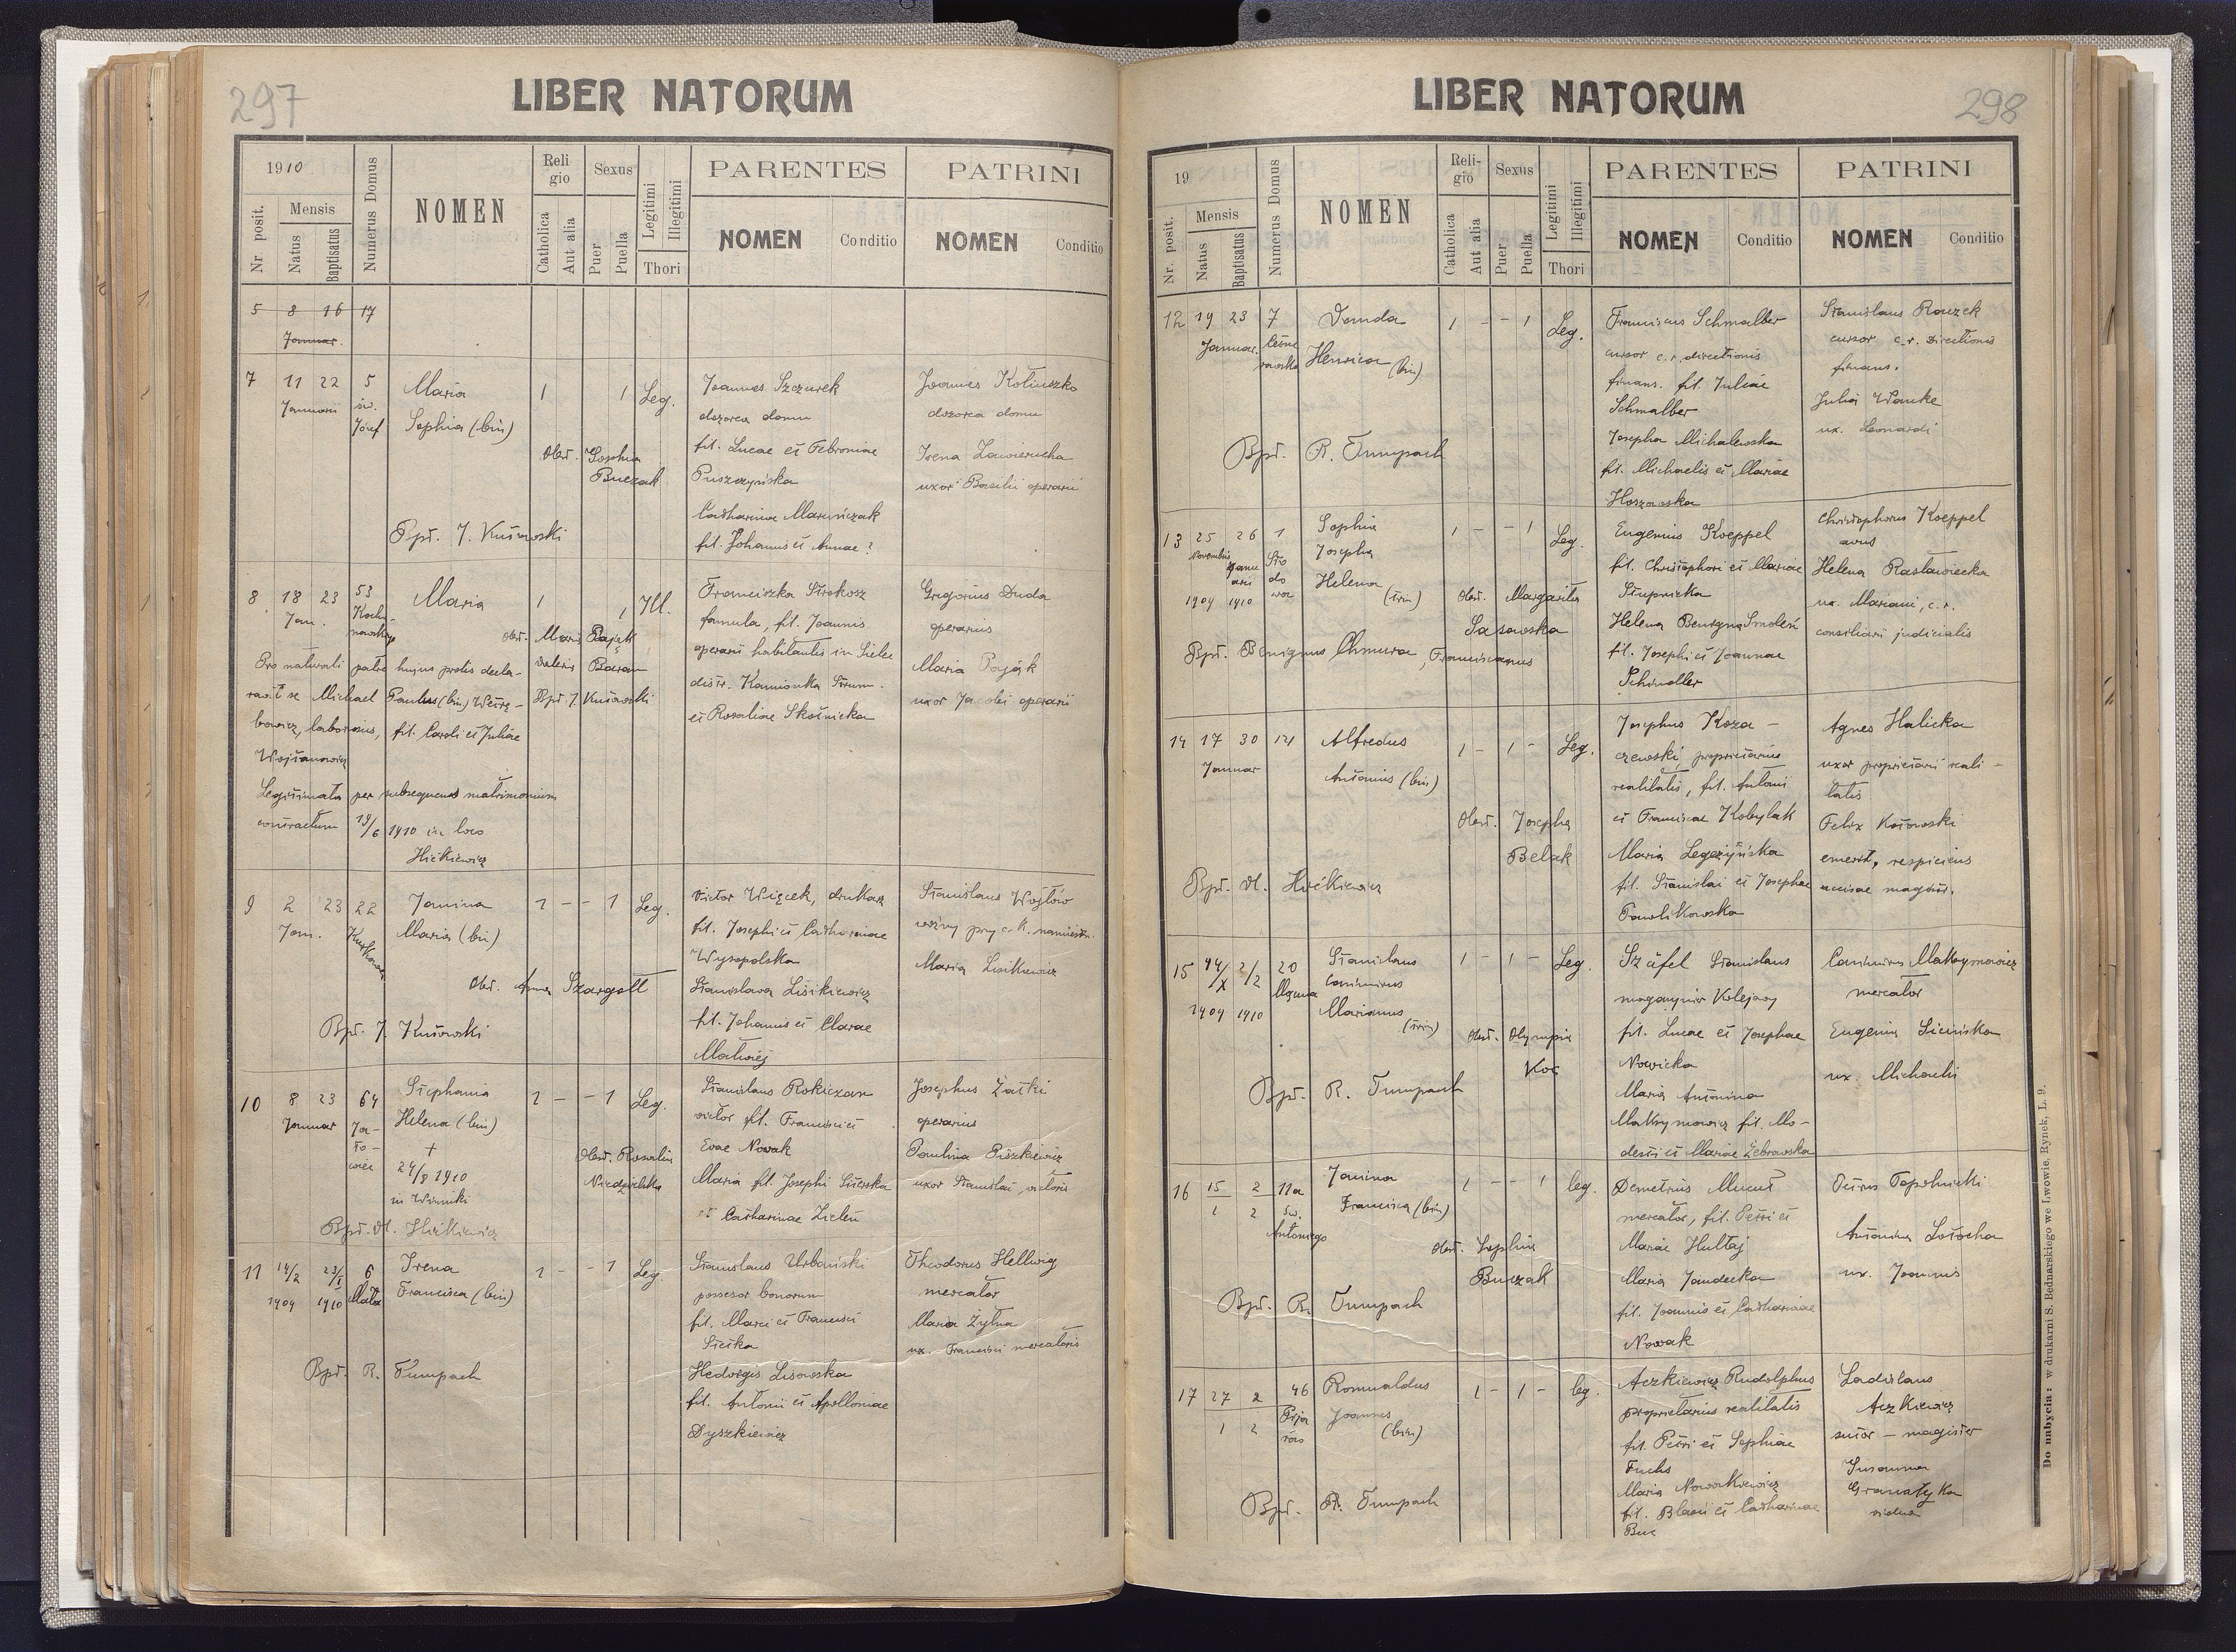 297
LIBER NATORUM
1910
Nr. posit.
Mensis
Natus
Baptisatus
Numerus Domus
NOMEN
Religio
Catholica
Aut alia
Sexus
Puer
Puella
Legitimi
Illegitimi
Thori
PARENTES
NOMEN Conditio
PATRINI
NOMEN Conditio
5 8 16 17
Januar.
7 11 22 5 Maria 1 1 Leg. Joannes Szczurek
Januarii św. Józef Sophia (bin) dozorca domu dozorca domu
Obst. Sophia Buczak
fil. Lucae et Febroniae Irena Zawierucha
Puszczyńska uxor Basilii operarii
Catharina
fil. Johannis et Annae ?
Bpt. J. Kutowski
8 18 23 53 Maria 1 1 Ill. Franciszka Gregorius Duda
Jan. famula, fil. Joannis operarius
Obst. Maria Bająk operarii habitantis in Sielec Maria Bająk
Pro naturali patre hujus prolis decla-
Baran distr. Kamionka Strum. uxor Jacobi operarii
ravit se Michael Paulus (bin)
Bpt. J. Kutowski et Rosaliae Skotnicka
fil. Caroli et Juliae
Wojtanowicz
Legitimata per subsequens matrimonium
contractum 19/6 1910 in loco
9 2 23 22 Janina 1 - - 1 Leg. Victor Więcek, drukarz Stanislaus Wojtów
Jan. Kurkowa Maria (bin) fil. Josephi et Catharinae woźny przy c.k.
Wysopolska Maria Lisikiewicz
Obst. Anna Szargott Stanislava Lisikiewicz
fil. Johannis et Clarae
Bpt. J. Kutowski
Matwiej
10 8 23 64 Stephania 1 - - 1 Leg. Stanislaus Rokiczan Josephus
Januar Helena (bin) fil. Francisci et operarius
† Obst. Rosalia Evae Nowak Paulina Piszkiewicz
24/8 1910 Niedzielska Maria fil. Josephi uxor Stanislai,
in Winniki et Catharinae Zieleń
11 14/2 23/I 6 Irena 1 - - 1 Leg. Stanislaus Urbański Theodorus Hellwig
1909 1910 Mała Francisca (bin) possesor bonorum mercator
fil. Marci et Francisci Maria Żytna
ux. Francisci mercatoris
Hedvigis Lisowska
Bpt. R. Tumpach
fil. Antonii et Apolloniae
Dyszkiewicz
298
LIBER NATORUM
19
Nr. posit.
Mensis
Natus
Baptisatus
Numerus Domus
NOMEN
Religio
Catholica
Aut alia
Sexus
Puer
Puella
Legitimi
Illegitimi
Thori
PARENTES
NOMEN Conditio
PATRINI
NOMEN Conditio
12 19 23 7 Vanda 1 - - 1 Leg. Franciscus Schmalber Stanislaus
Januar. Henrica (bin) cursor c.r. directionis cursor c.r. directionis
finans. fil. Juliae finans.
Schmalber
Josepha Michalewska ux. Leonardi
Bpt. R. Tumpach fil. Michaelis et Mariae
Hoszowska
13 25 26 1 Sophia 1 - - 1 Leg. Eugenius Koeppel Christophorus Koeppel
Novembris Januarii Josepha avus
Helena (trin) fil. Christophori et Mariae Helena Rastawiecka
1909 1910 Obst. Margarita Stupnicka ux. Mariani, c.r.
Sasowska Helena Benigna Smoleń consiliarii judicialis
Bpt. Benignus Chmura, Franciscanus fil. Josephi et Joannae
Schindler
14 17 30 121 Alfredus 1 - 1 - Leg. Josephus Koza- Agnes Halicka
Januar Antonius (bin) czewski, proprietarius uxor proprietarii reali-
realitatis, fil. Antoni tatis
Obst. Josepha Belak et Franciscae Kobylak Felix Kotowski
Maria Legeżyńska emerit, respiciens
fil. Stanislai et Josephae
Pawlikowska
15 2/2 20 Stanislaus 1 - 1 - Leg. Szafel Stanislaus Casimirus Maksymowicz
Casimirus magazynier kolejowy mercator
1909 1910 Marianus (trin) Obst. Olympia Koc fil. Lucae et Josephae Eugenia
Nowicka ux. Michaelis
Bpt. R. Tumpach Maria Antonina
Maksymowicz fil. Mo-
desti et Mariae Żebrowska
16 15 2 11a Janina 1 - - 1 leg. Demetrius Mucut
1 2 św. Antoniego Francisca (bin) mercator, fil. Petri et
Obst. Sophia Buczak Mariae Hultaj Antonina
Maria Jandecka ux. Joannis
Bpt. R. Tumpach fil. Joannis et Catharinae
Nowak
17 27 2 46 Romualdus 1 - 1 - leg. Aczkiewicz Rudolphus Ladislaus
1 2 Joannes (bin) proprietarius realitatis Aczkiewicz
fil. Petri et Sophiae sutor - magister
Fuchs Susanna
Maria Nowakiewicz
Bpt. R. Tumpach fil. Blasii et Catharinae vidua
Buc
Do nabycia: w drukarni S. Bednarskiego we Lwowie, Rynek, L. 9.